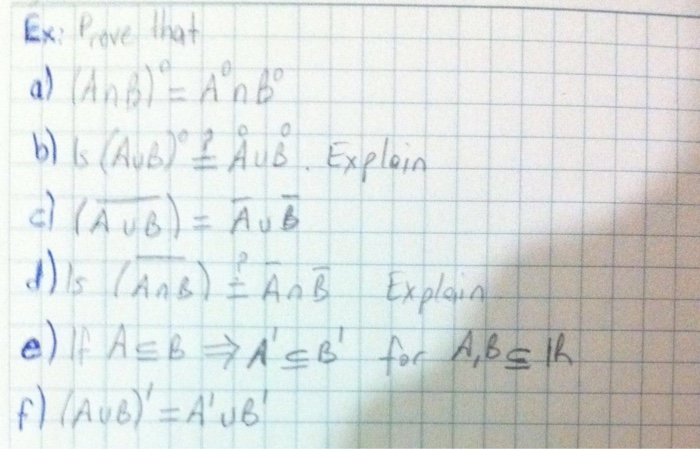 Ex: Prove that
a) (A∩B)° = A°∩B°
b) Is (A∪B)° ≟ Å∪B̊. Explain
c) (A̅ ̅∪̅ ̅B̅) = A̅∪B̅
d) Is (A̅ ̅∩̅ ̅B̅) ≟ A̅∩B̅ Explain
e) If A⊆B ⇒ A'⊆B' for A,B⊆ℝ
f) (A∪B)' = A'∪B'